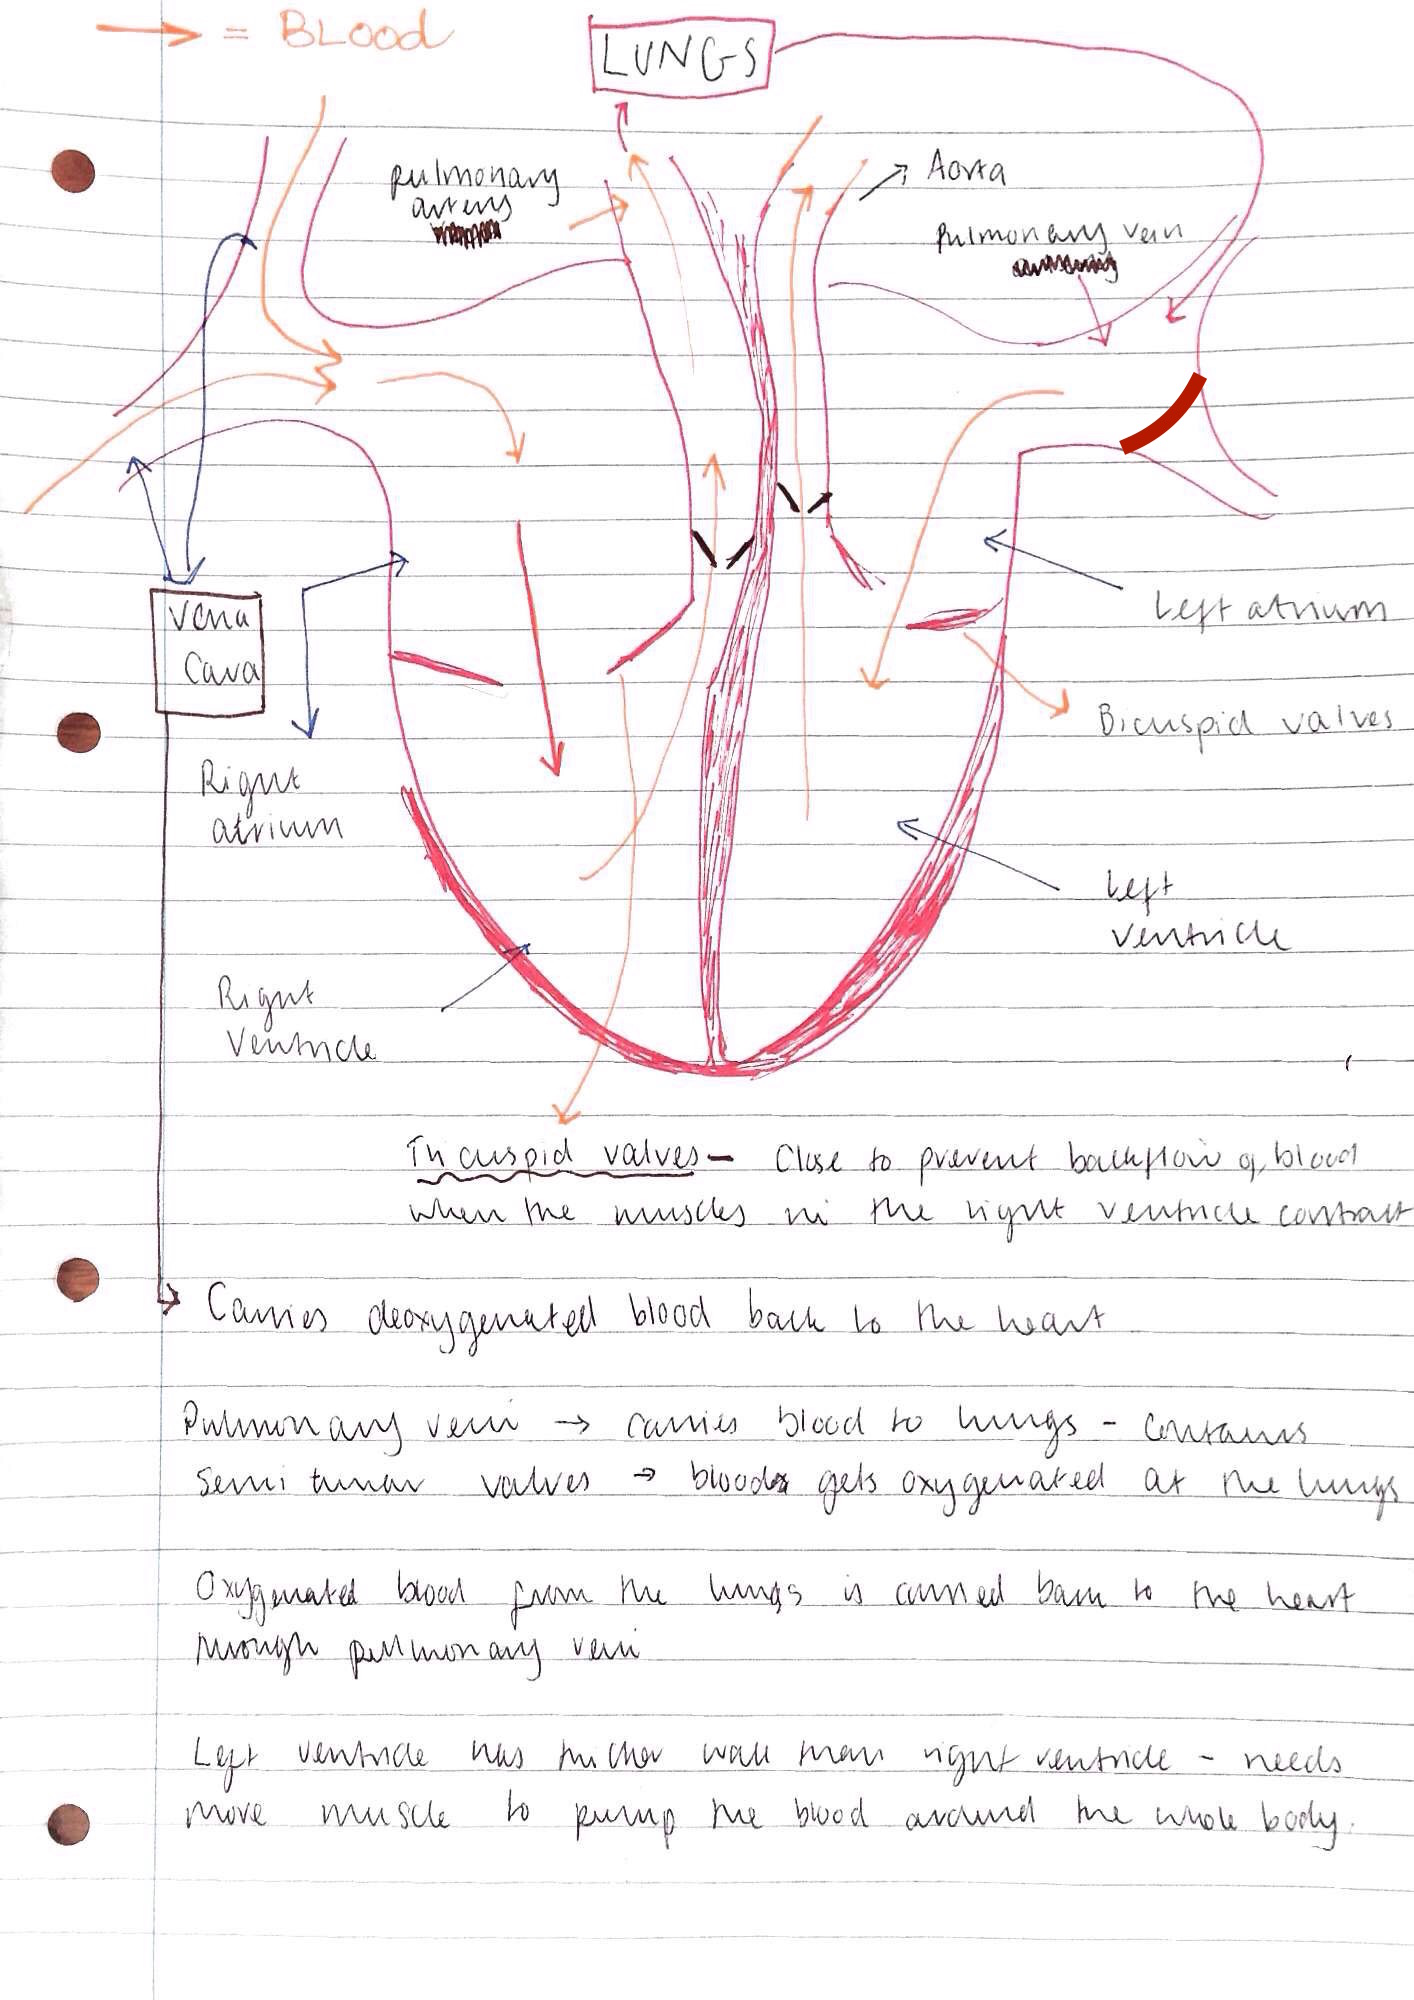 = BLOOD
LUNGS
pulmonary
artery
Aorta
Pulmonary vein
Vena
Cava
Left atrium
Bicuspid valves
Right
atrium
Left
ventricle
Right
Ventricle
Tricuspid valves – Close to prevent backflow of blood
when the muscles in the right ventricle contract
Carries deoxygenated blood back to the heart
Pulmonary vein → carries blood to lungs - contains
semi lunar valves → blood gets oxygenated at the lungs
Oxygenated blood from the lungs is carried back to the heart
through pulmonary vein
Left ventricle has thicker wall than right ventricle - needs
more muscle to pump the blood around the whole body.